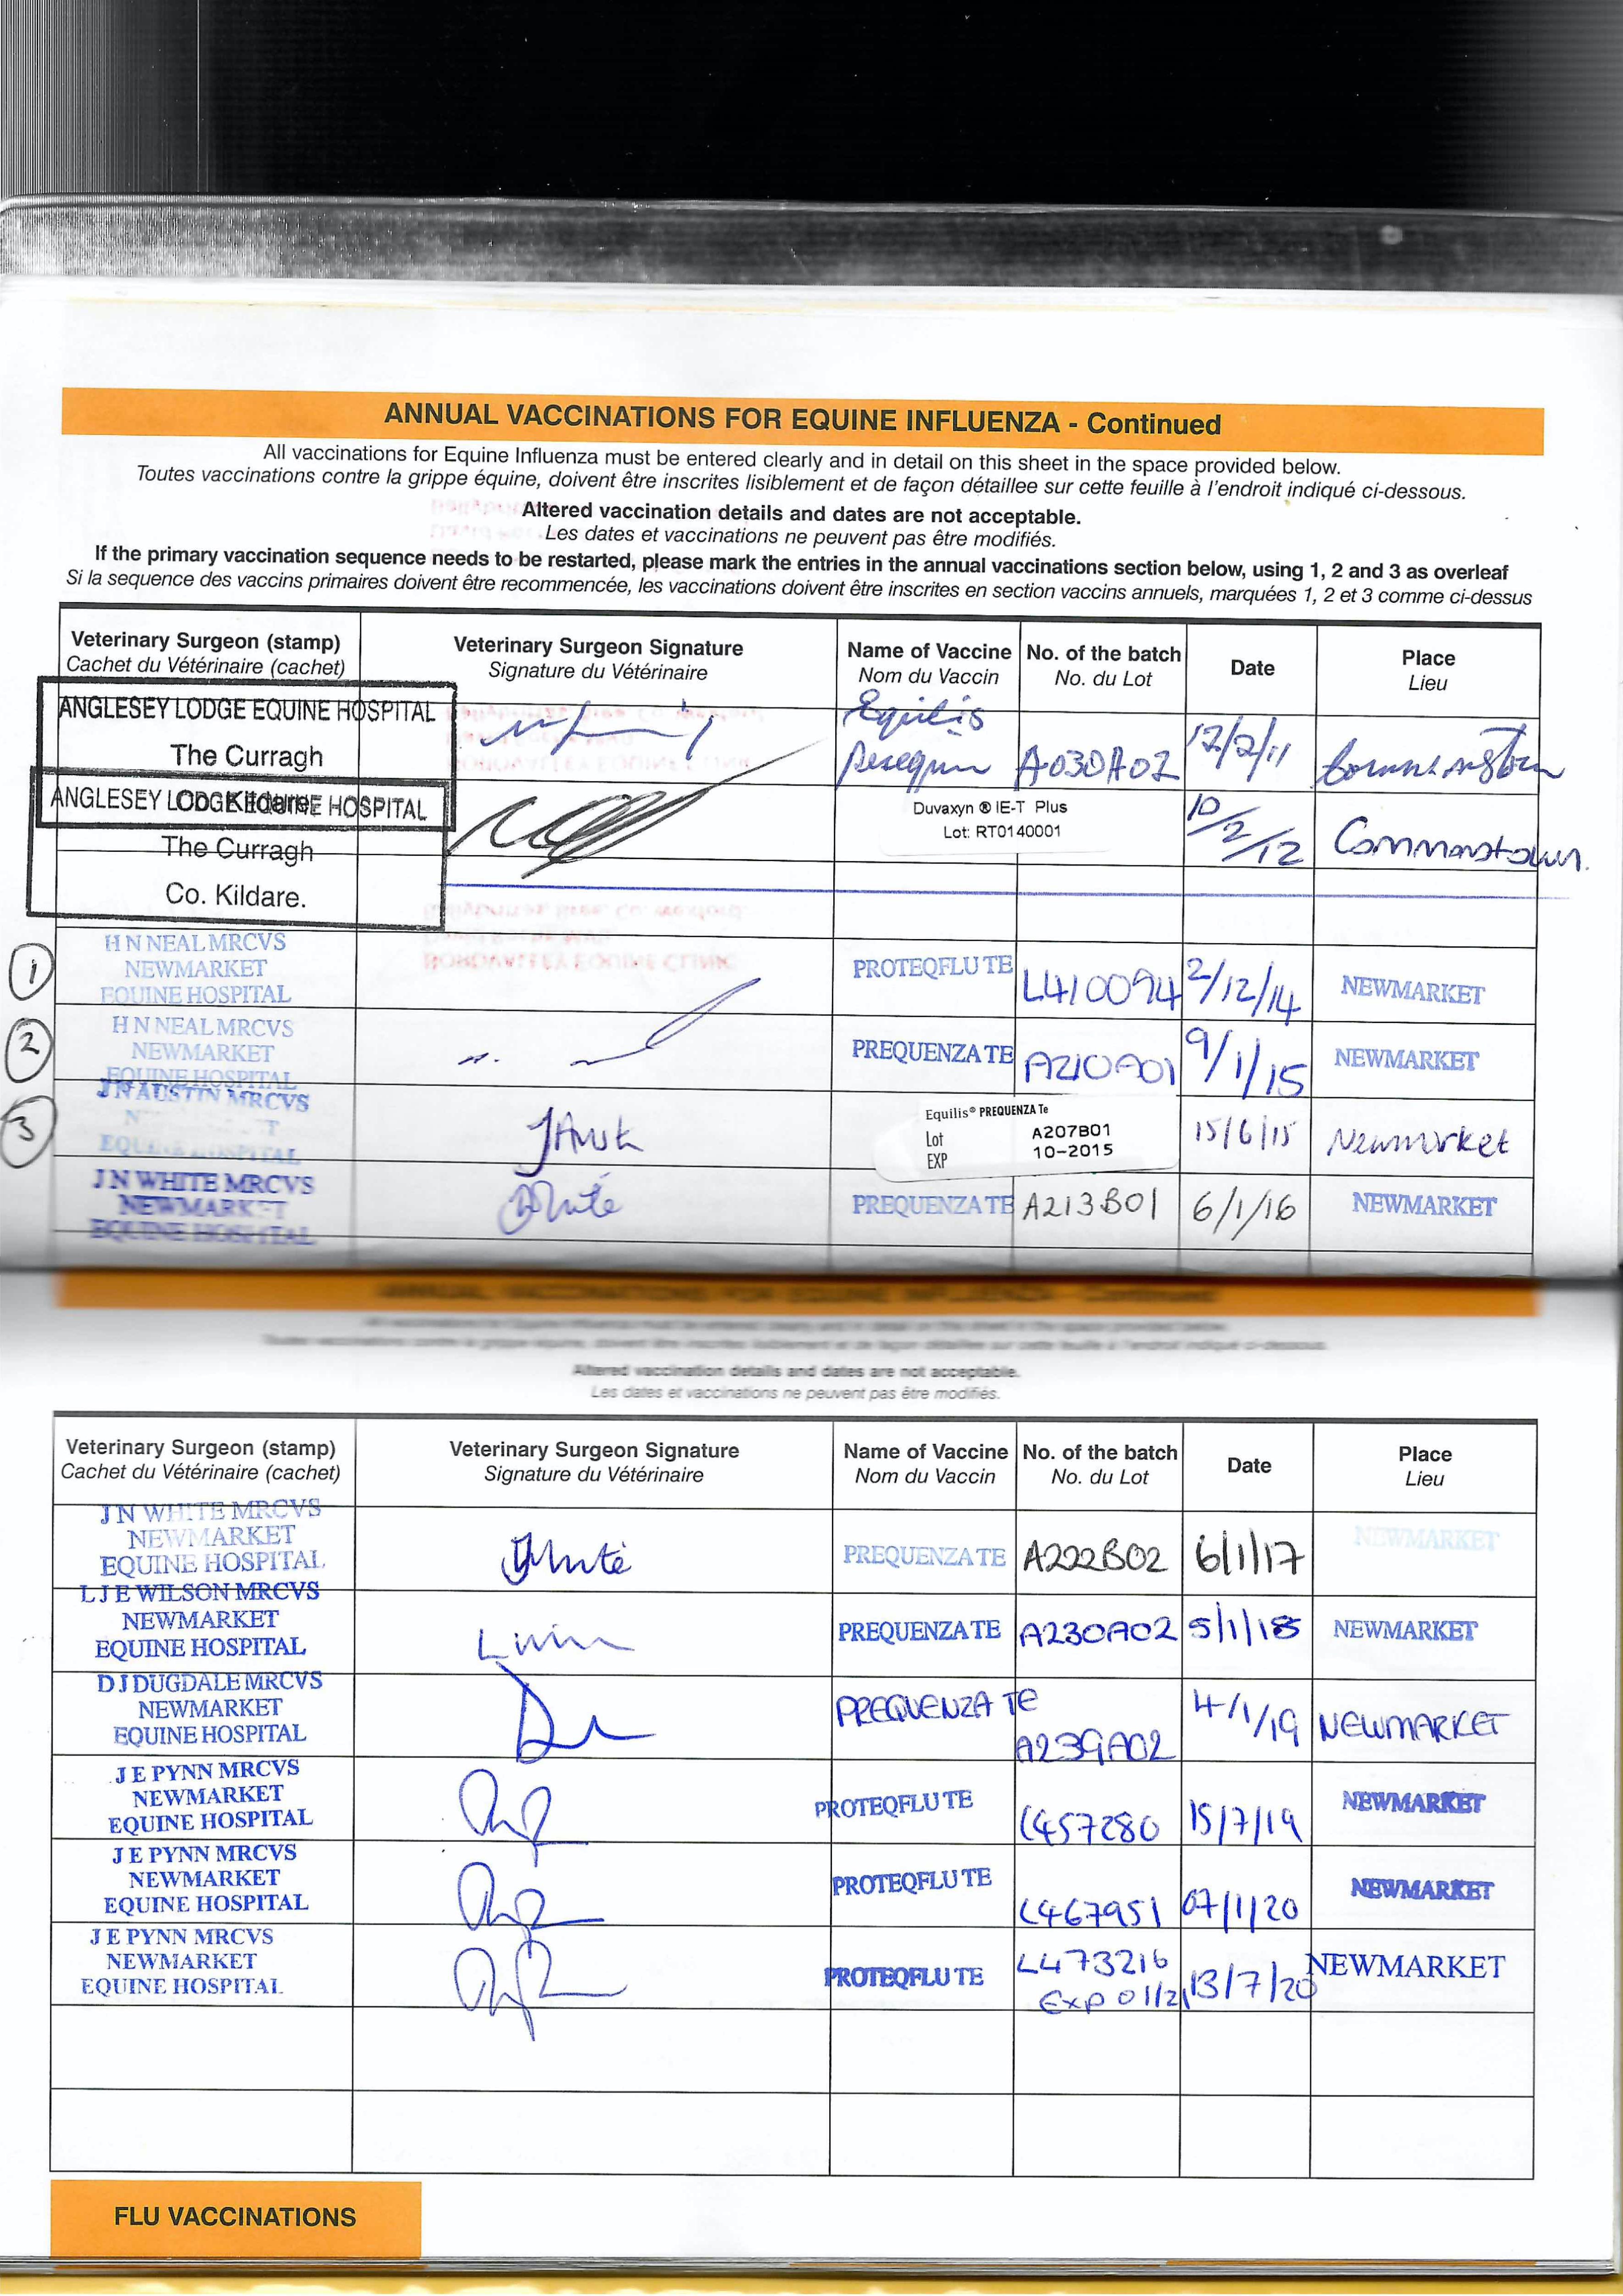 ANNUAL VACCINATIONS FOR EQUINE INFLUENZA - Continued
All vaccinations for Equine Influenza must be entered clearly and in detail on this sheet in the space provided below.
Toutes vaccinations contre la grippe équine, doivent être inscrites lisiblement et de façon détaillee sur cette feuille à l'endroit indiqué ci-dessous.
Altered vaccination details and dates are not acceptable.
Les dates et vaccinations ne peuvent pas être modifiés.
If the primary vaccination sequence needs to be restarted, please mark the entries in the annual vaccinations section below, using 1, 2 and 3 as overleaf
Si la sequence des vaccins primaires doivent être recommencée, les vaccinations doivent être inscrites en section vaccins annuels, marquées 1, 2 et 3 comme ci-dessus
Veterinary Surgeon (stamp) Veterinary Surgeon Signature Name of Vaccine No. of the batch Date Place
Cachet du Vétérinaire (cachet) Signature du Vétérinaire Nom du Vaccin No. du Lot Lieu
ANGLESEY LODGE EQUINE HOSPITAL Equilis
The Curragh A030A02 12/2/11
Kildare
ANGLESEY LODGE EQUINE HOSPITAL Duvaxyn ® IE-T Plus
Lot: RT0140001 10/2/12 Commonstown.
The Curragh
Co. Kildare.
1 H N NEAL MRCVS
NEWMARKET PROTEQFLU TE L410094 2/12/14 NEWMARKET
EQUINE HOSPITAL
2 H N NEAL MRCVS
NEWMARKET PREQUENZA TE A210A01 9/1/15 NEWMARKET
EQUINE HOSPITAL
3 J N AUSTIN MRCVS Equilis® PREQUENZA Te
Lot A207B01 15/6/15 Newmarket
EQUINE HOSPITAL EXP 10-2015
J N WHITE MRCVS
NEWMARKET PREQUENZA TE A213B01 6/1/16 NEWMARKET
EQUINE HOSPITAL
ANNUAL VACCINATIONS FOR EQUINE INFLUENZA - Continued
Altered vaccination details and dates are not acceptable.
Les dates et vaccinations ne peuvent pas être modifiés.
Veterinary Surgeon (stamp) Veterinary Surgeon Signature Name of Vaccine No. of the batch Date Place
Cachet du Vétérinaire (cachet) Signature du Vétérinaire Nom du Vaccin No. du Lot Lieu
J N WHITE MRCVS
NEWMARKET PREQUENZA TE A222B02 6/1/17 NEWMARKET
EQUINE HOSPITAL
L J E WILSON MRCVS
NEWMARKET PREQUENZA TE A230A02 5/1/18 NEWMARKET
EQUINE HOSPITAL
D J DUGDALE MRCVS
NEWMARKET PREQUENZA TE A239A02 4/1/19 NEWMARKET
EQUINE HOSPITAL
J E PYNN MRCVS
NEWMARKET PROTEQFLU TE L457280 15/7/19 NEWMARKET
EQUINE HOSPITAL
J E PYNN MRCVS
NEWMARKET PROTEQFLU TE L467951 07/1/20 NEWMARKET
EQUINE HOSPITAL
J E PYNN MRCVS
NEWMARKET PROTEQFLU TE L473216 13/7/20 NEWMARKET
EQUINE HOSPITAL Exp 01/21
FLU VACCINATIONS